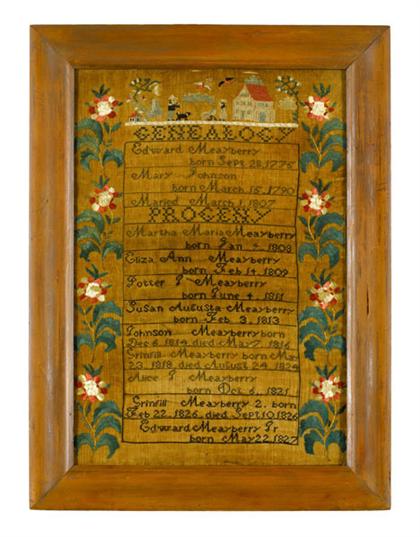 GENEALOGY
Edward Meayberry
born Sept. 28, 1775
Mary Johnson
born March 15, 1790
Maried March 1, 1807
PROGENY
Martha Maria Meayberry
born Jan 1808
Eliza Ann Meayberry
born Feb 14, 1809
Potter Meayberry
born June 4, 1811
Susan Augusta Meayberry
born Feb 3, 1813
Johnson Meayberry born
Dec 6, 1814, died May 7, 1816
Grinfill Meayberry born May
23, 1818, died August 24, 1824
Alice Meayberry
born Oct 6, 1821
Grinfill Meayberry 2. born
Feb 22, 1826, died Sept 10 1826
Edward Meayberry Jr
born May 22, 1827